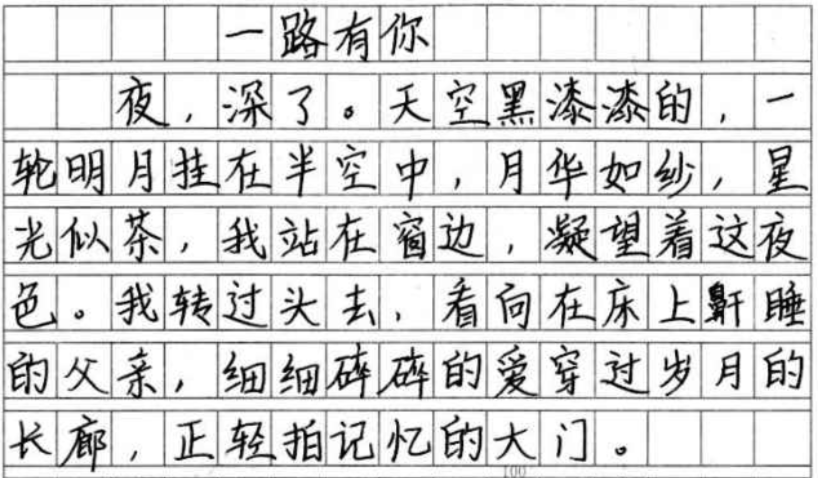 一路有你
夜，深了。天空黑漆漆的，一
轮明月挂在半空中，月华如纱，星
光似茶，我站在窗边，凝望着这夜
色。我转过头去，看向在床上鼾睡
的父亲，细细碎碎的爱穿过岁月的
长廊，正轻拍记忆的大门。
100